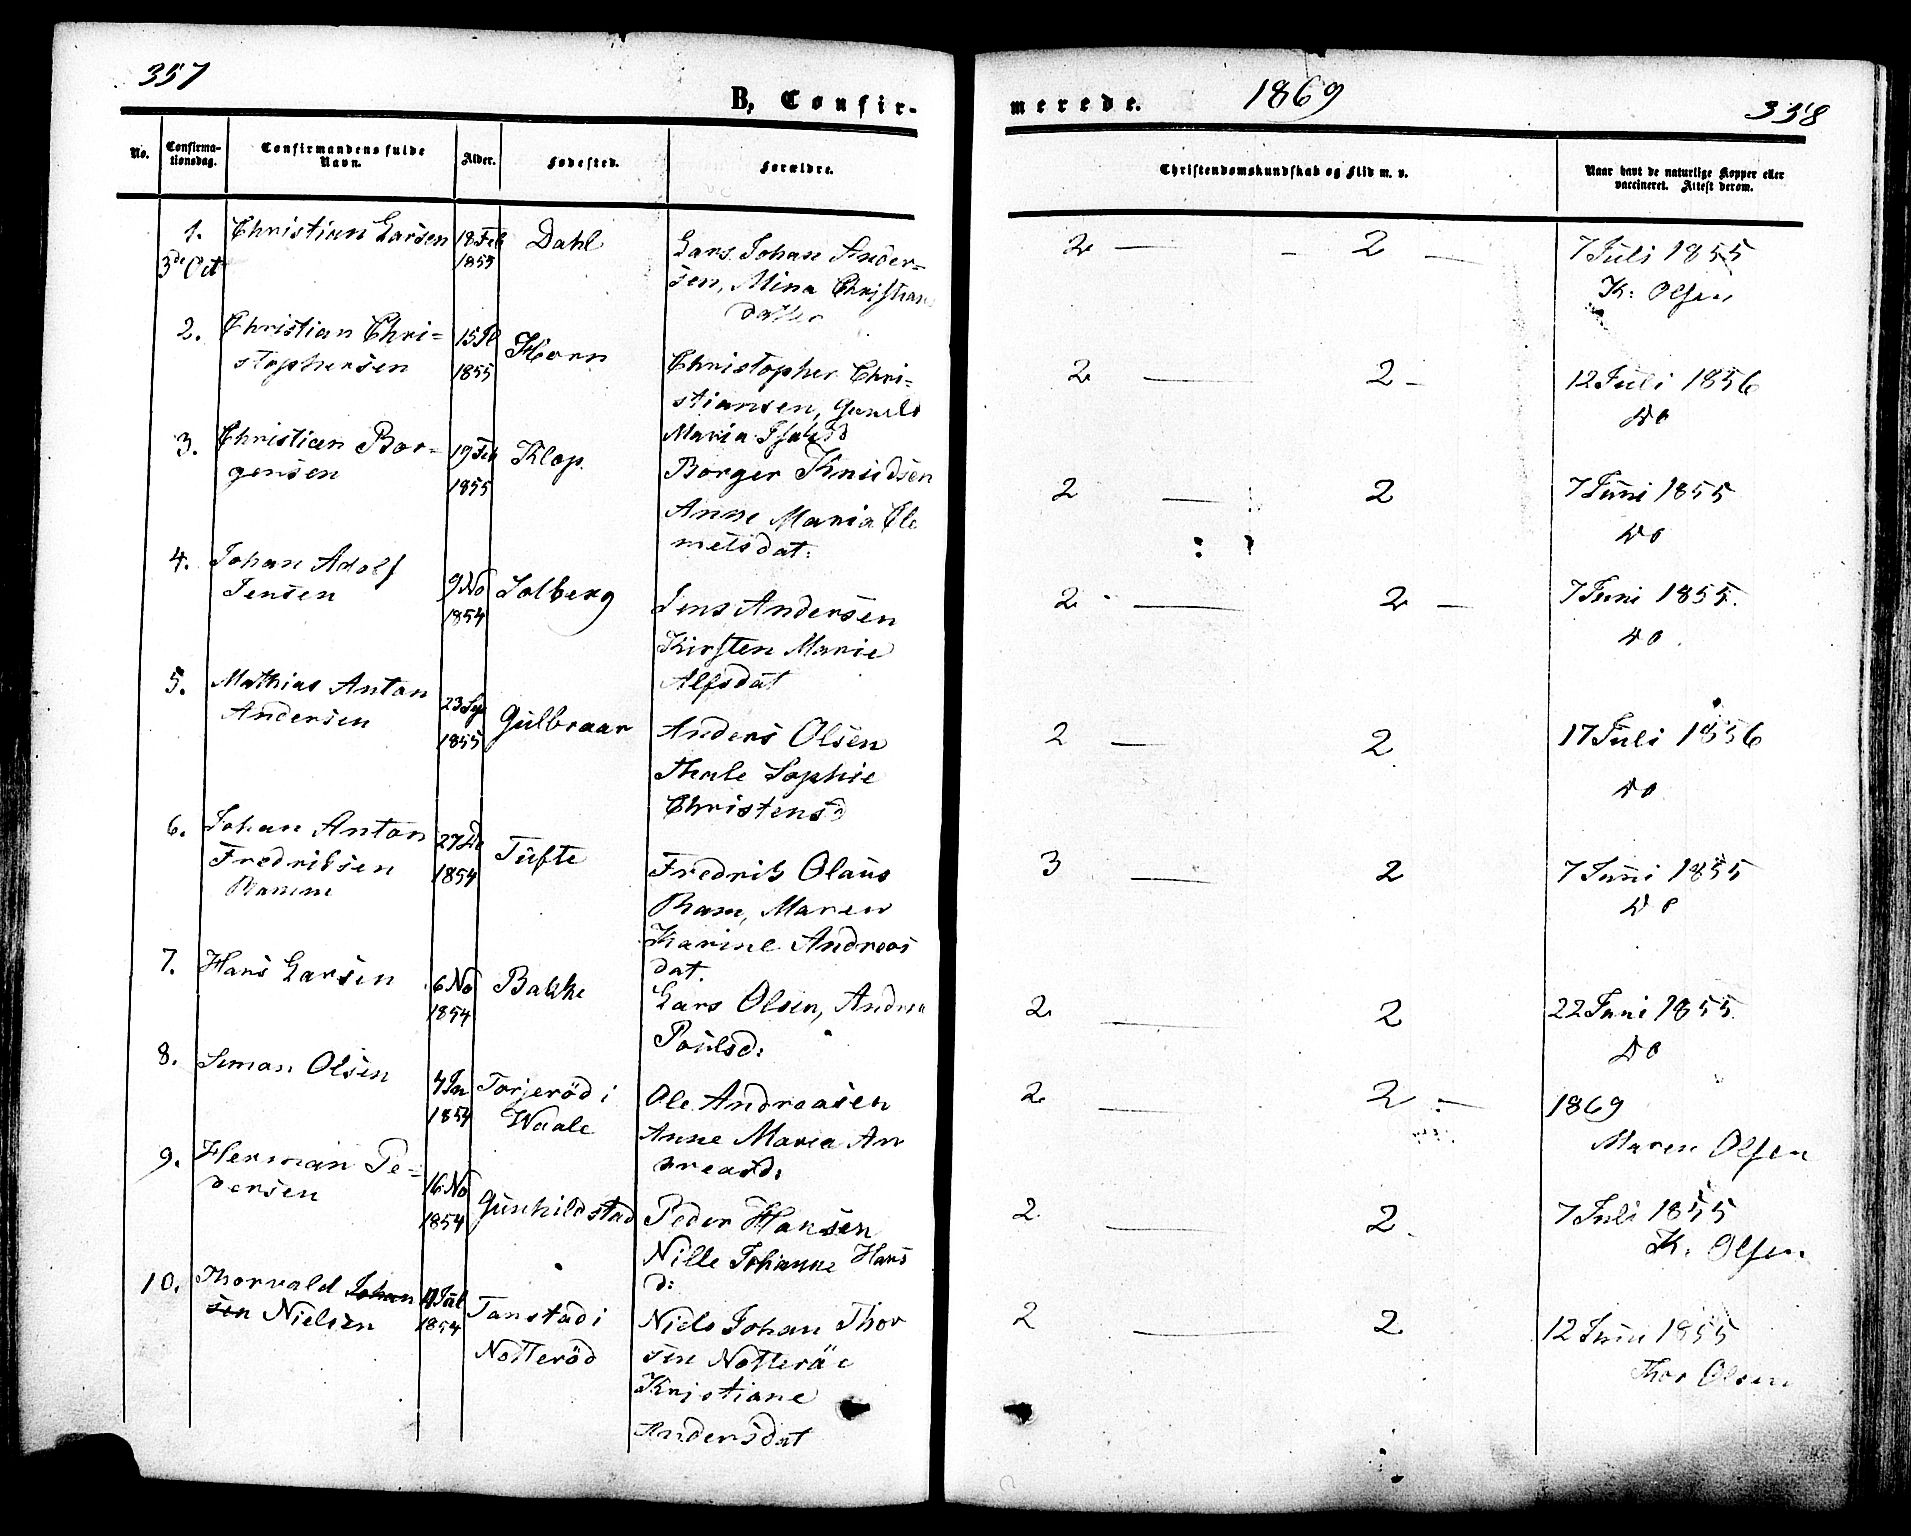 357
B, Confir-
No.
Confirma-
tionsdag.
Confirmandens fulde
Navn.
Alder.
Fødested.
Forældre.
1.
3de Oct
Christian Larsen
18 Feb
1855
Dahl
Lars Johan Ander-
sen, Mina Christian
datter
2.
Christian Chri-
stophersen
1855
Horn
Christopher Chri-
stiansen,
Maria
3.
Christian Bor-
gersen
19 Feb
1855
Klop
Borger Knudsen
Anne Maria Cle
metsdat:
4.
Johan Adolf
Jensen
9 No
1854
Solberg
Jens Andersen
Kirsten Marie
Alfsdat
5.
Mathias Anton
Andersen
23 Sep
1855
Gulbraar
Anders Olsen
Thale Sophie
Christensd
6.
Johan Anton
Fredriksen
Ramm
27 De
1854
Tufte
Fredrik Olaus
Ram, Maren
Karine Andreas
dat.
7.
Hans Larsen
6 No
1854
Bakke
Lars Olsen, Andrea
Poulsd:
8.
Simon Olsen
4 Jan
1854
Torjeröd i
Waale
Ole Andreasen
Anne Maria An
dreasd:
9.
Herman Pe-
dersen
16 No
1854
Gunhildstad
Peder Hansen
Nille Johanne Hans
d:
10.
Thorvald Johan
sen Nielsen
1854
Tanstad i
Notteröd
Niels Johan Thor
sen Notteröe
Kristiane
Andersdat
merede.
1869
358
Christendomskundskab og Flid m. v.
Naar havt de naturlige Kopper eller
vaccineret. Attest derom.
2 — - 2 —
7 Juli 1855
K: Olsen
2 — 2 -
12 Juli 1856
do
2 — 2
7 Juni 1855
do
2 — 2 —
7 Juni 1855.
do.
2 — 2
17 Juli 1856
do
3 — 2
7 Juni 1855
do
2 — 2
22 Juni 1855
do
2 — 2 —
1869
Maren Olsen
2 — 2.
7 Juli 1855
K. Olsen
2 — 2
12 Juni 1855
Thor Olsen